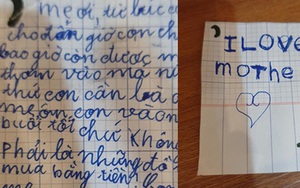 mẹ ơi, từ bức
cho đến giờ con ch
bao giờ còn được m
thơm vào má n
thứ con cần là
mẹ ôm con vào
buổi tối chứ không
phải là những đồ
mua bằng tiền
I LOVE
mothe